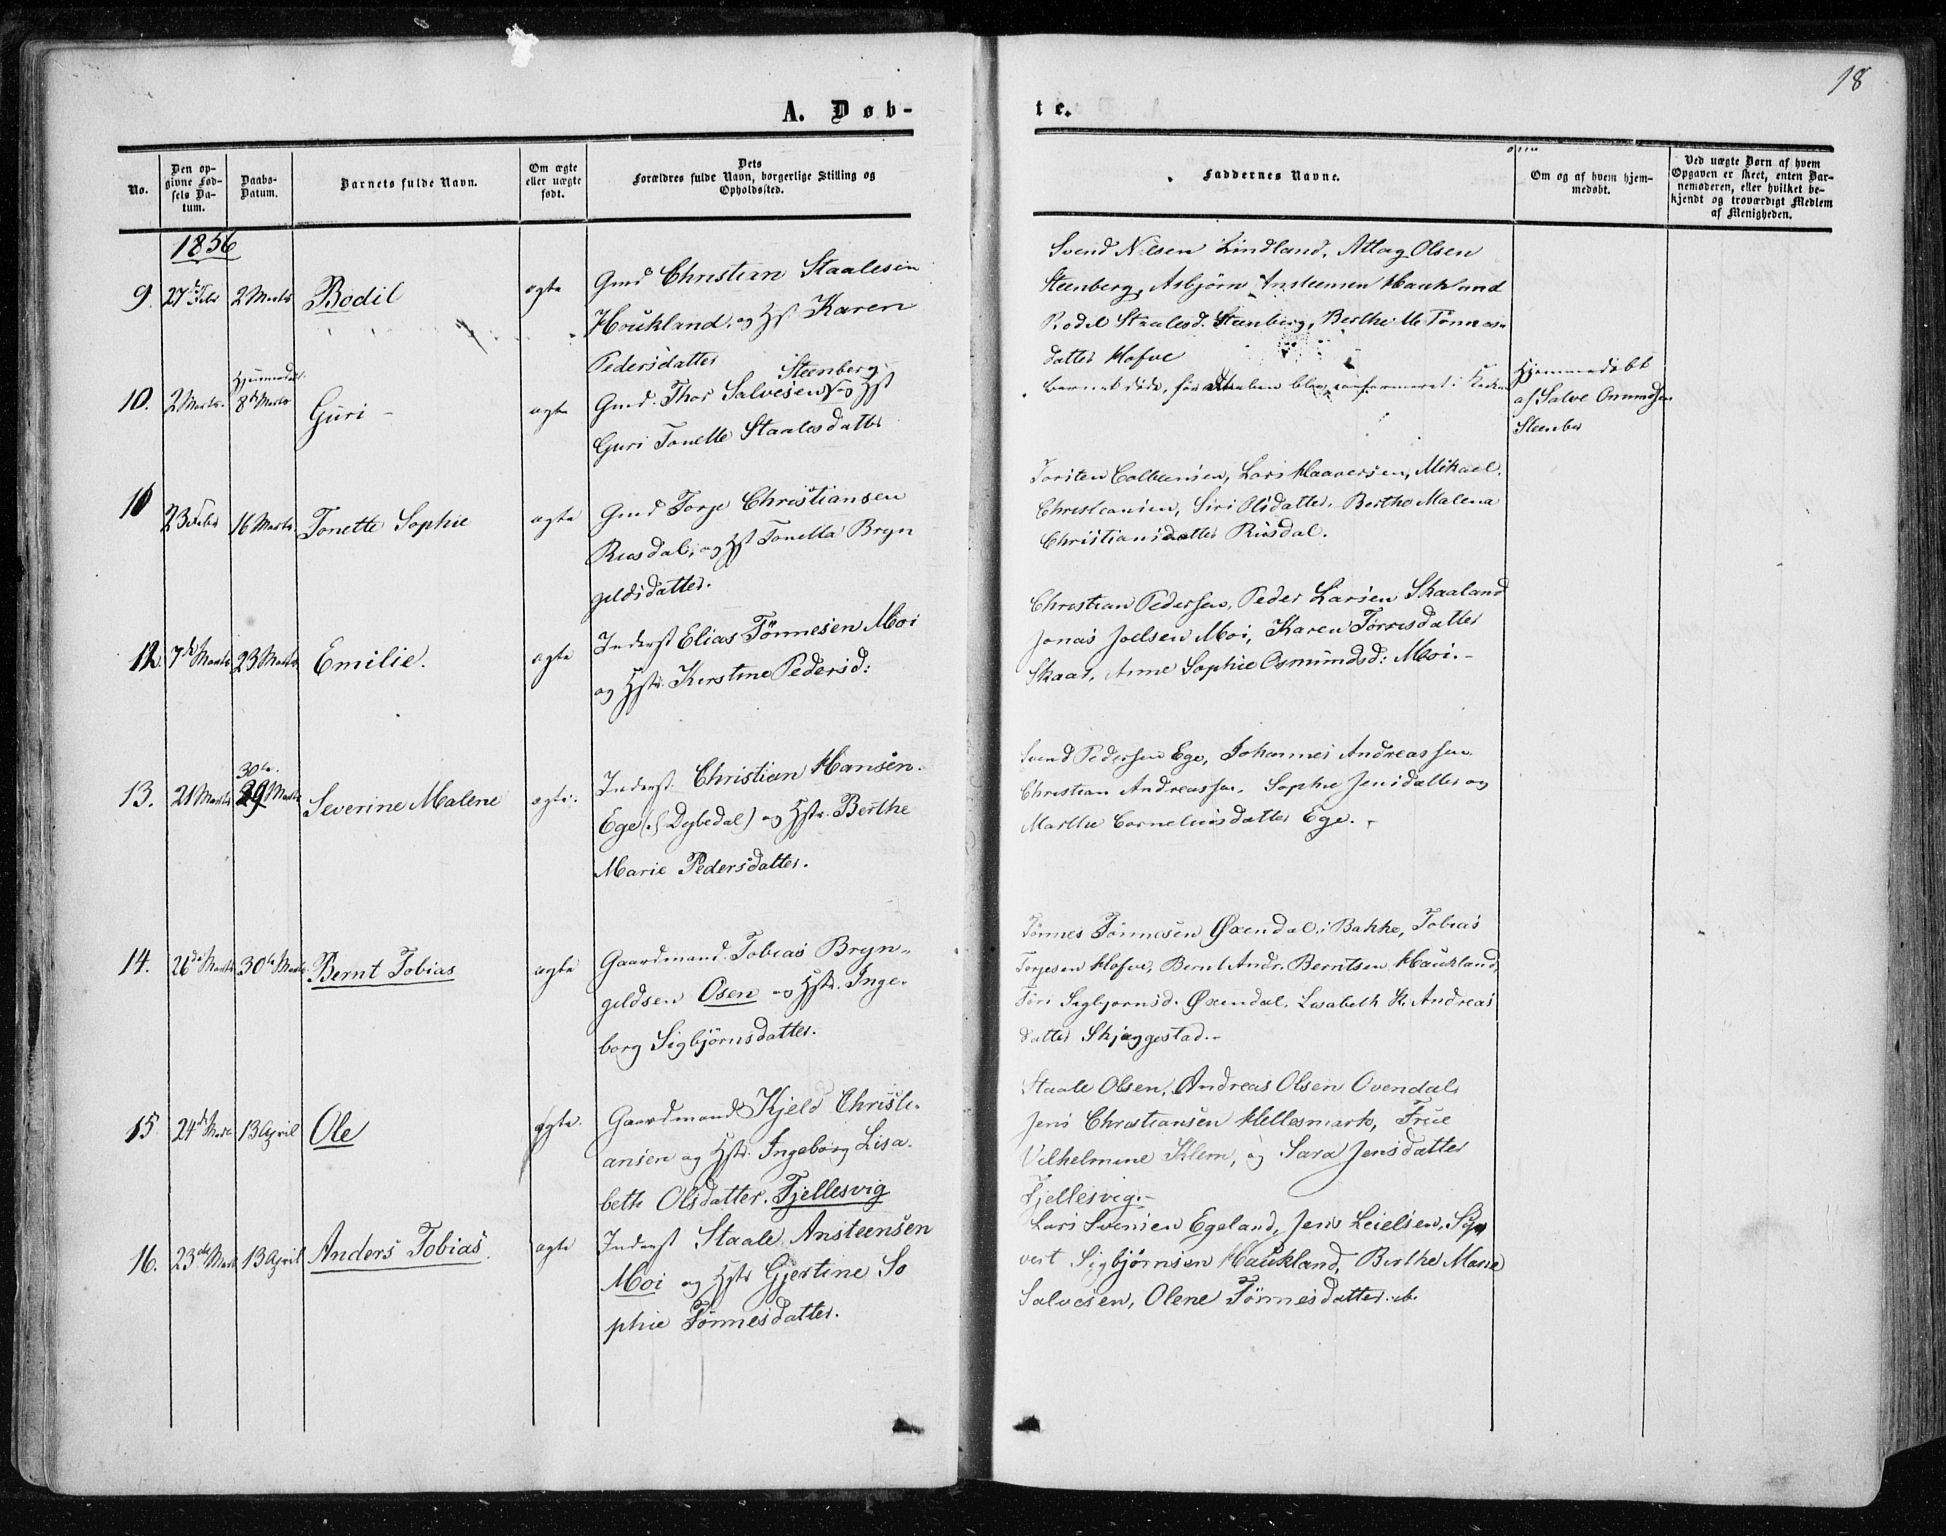 18
A. Døb-
te.
No.
Den op-
givne Fød-
sels Da-
tum.
Daabs-
Datum.
Barnets fulde Navn.
Om ægte
eller uægte
født.
Dets
Forældres fulde Navn, borgerlige Stilling og
Opholdssted.
Faddernes Navne.
Om og af hvem hjem-
medøbt.
Ved uægte Børn af hvem
Opgaven er skeet, enten Bar-
nemoderen, eller hvilket be-
kjendt og troværdigt Medlem
af Menigheden.
1856
9. 27de Febr 2 Marts Bodil ægte
Gmd Christian Staalesen
Houkland, og Hst Karen
Pedersdatter
Svend Nilsen Lindland, Attag Olsen
Steenberg, Asbjørn Ansteensen Haukland
Bodel Staalesd. Steenberg, Berthe M Tønnes-
datter Hofve
10. 2 Marts. Hjemmedøbt 8de Marts Guri - ægte
Gmd. Thor Salvesen Steenberg og Hst
Guri Tonette Staalesdatter
Barnet døde, før Daaben blev confirmeret i Kirken
Hjemmedøbt
af Salve Osmundsen
Steenber
11 23 Febr 16 Marts. Tonette Sophie ægte
Gmd Torje Christiansen
Risdal, og Hst Tonetta Bryn
geldsdatter.
Torsten Colbeensen, Lars Haaversen, Mikael
Christiansen, Siri Olsdatter, Berthe Malena
Christiansdatter Risdal.
12. 7de Marts 23 Marts Emilie. ægte
Inderst Elias Tönnesen Moi
og Hstr. Kirstine Pedersd:
Christian Pedersen, Peder Larsen Skaaland
Jonas Joelsen Moi, Karen Tørresdatter
Skaal, Anne Sophie Osmundsd: Moi.-
13. 21 Marts 30te 29 Marts Severine Malene ægte.
Inderst Christian Hansen
Ege (Dybedal) og Hstr. Berthe
Marie Pedersdatter.
Svend Pedersen Ege, Johannes Andreassen
Christian Andreassen, Sophie Jensdatter og
Marthe Corneliusdatter Ege.
14. 26de Marts 30te Marts Bernt Tobias ægte
Gaardmand Tobias Bryn-
geldsen Osen og Hstr. Inge-
borg Sigbjörnsdatter.
Tönnes Tönnesen Øxendal i Bakke, Tobias
Torjesen Hofve, Bernt Andr. Berntsen Haukland,
Siri Sigbjørnsd. Øxendal, Lisabeth K. Andreas
datter Skjeggestad.-
15. 24de Mart 13 April Ole ægte.
Gaardmand Kjeld Christi-
ansen og Hstr. Ingeborg Lisa-
beth Olsdatter. Fjellesvig
Staale Olsen, Andreas Olsen Ovendal,
Jens Christiansen Hellesmark, Frue
Vilhelmine Klem, og Sara Jensdatter
Fjellesvig.-
16. 23de Mart 13 April Anders Tobias. ægte
Inderst Staale Ansteensen
Moi og Hstr Gjertine So
phie Tönnesdatter.
Lars Svensen Egeland, Jens Leielsen, Sy
vert Sigbjörnsen Haukland, Berthe Marie
Salvesen, Olene Tönnesdatter